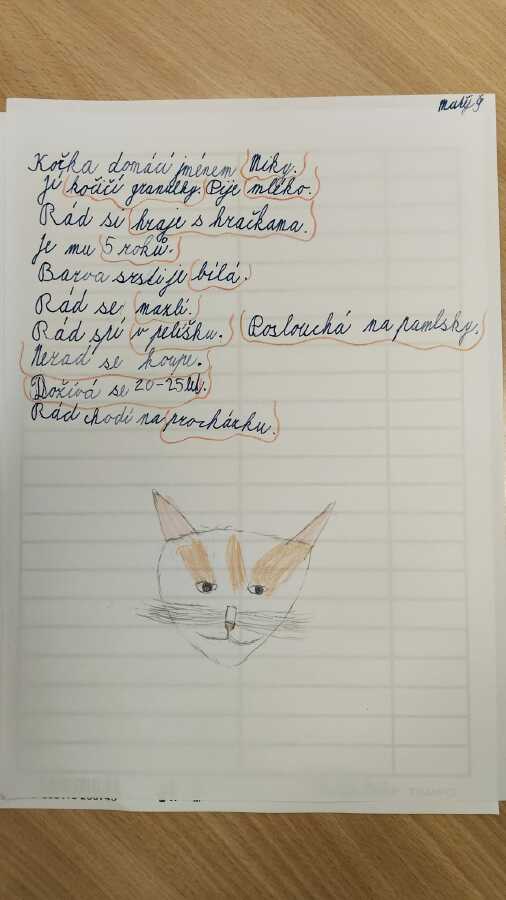 Malý Š
Kočka domácí jménem Miky.
Jí kočičí granulky. Pije mléko.
Rád si hraje s hračkama.
Je mu 5 roků.
Barva srsti je bílá.
Rád se mazlí.
Rád spí v pelíšku. Poslouchá na pamlsky.
Nerad se koupe.
Dožívá se 20-25 let.
Rád chodí na procházku.